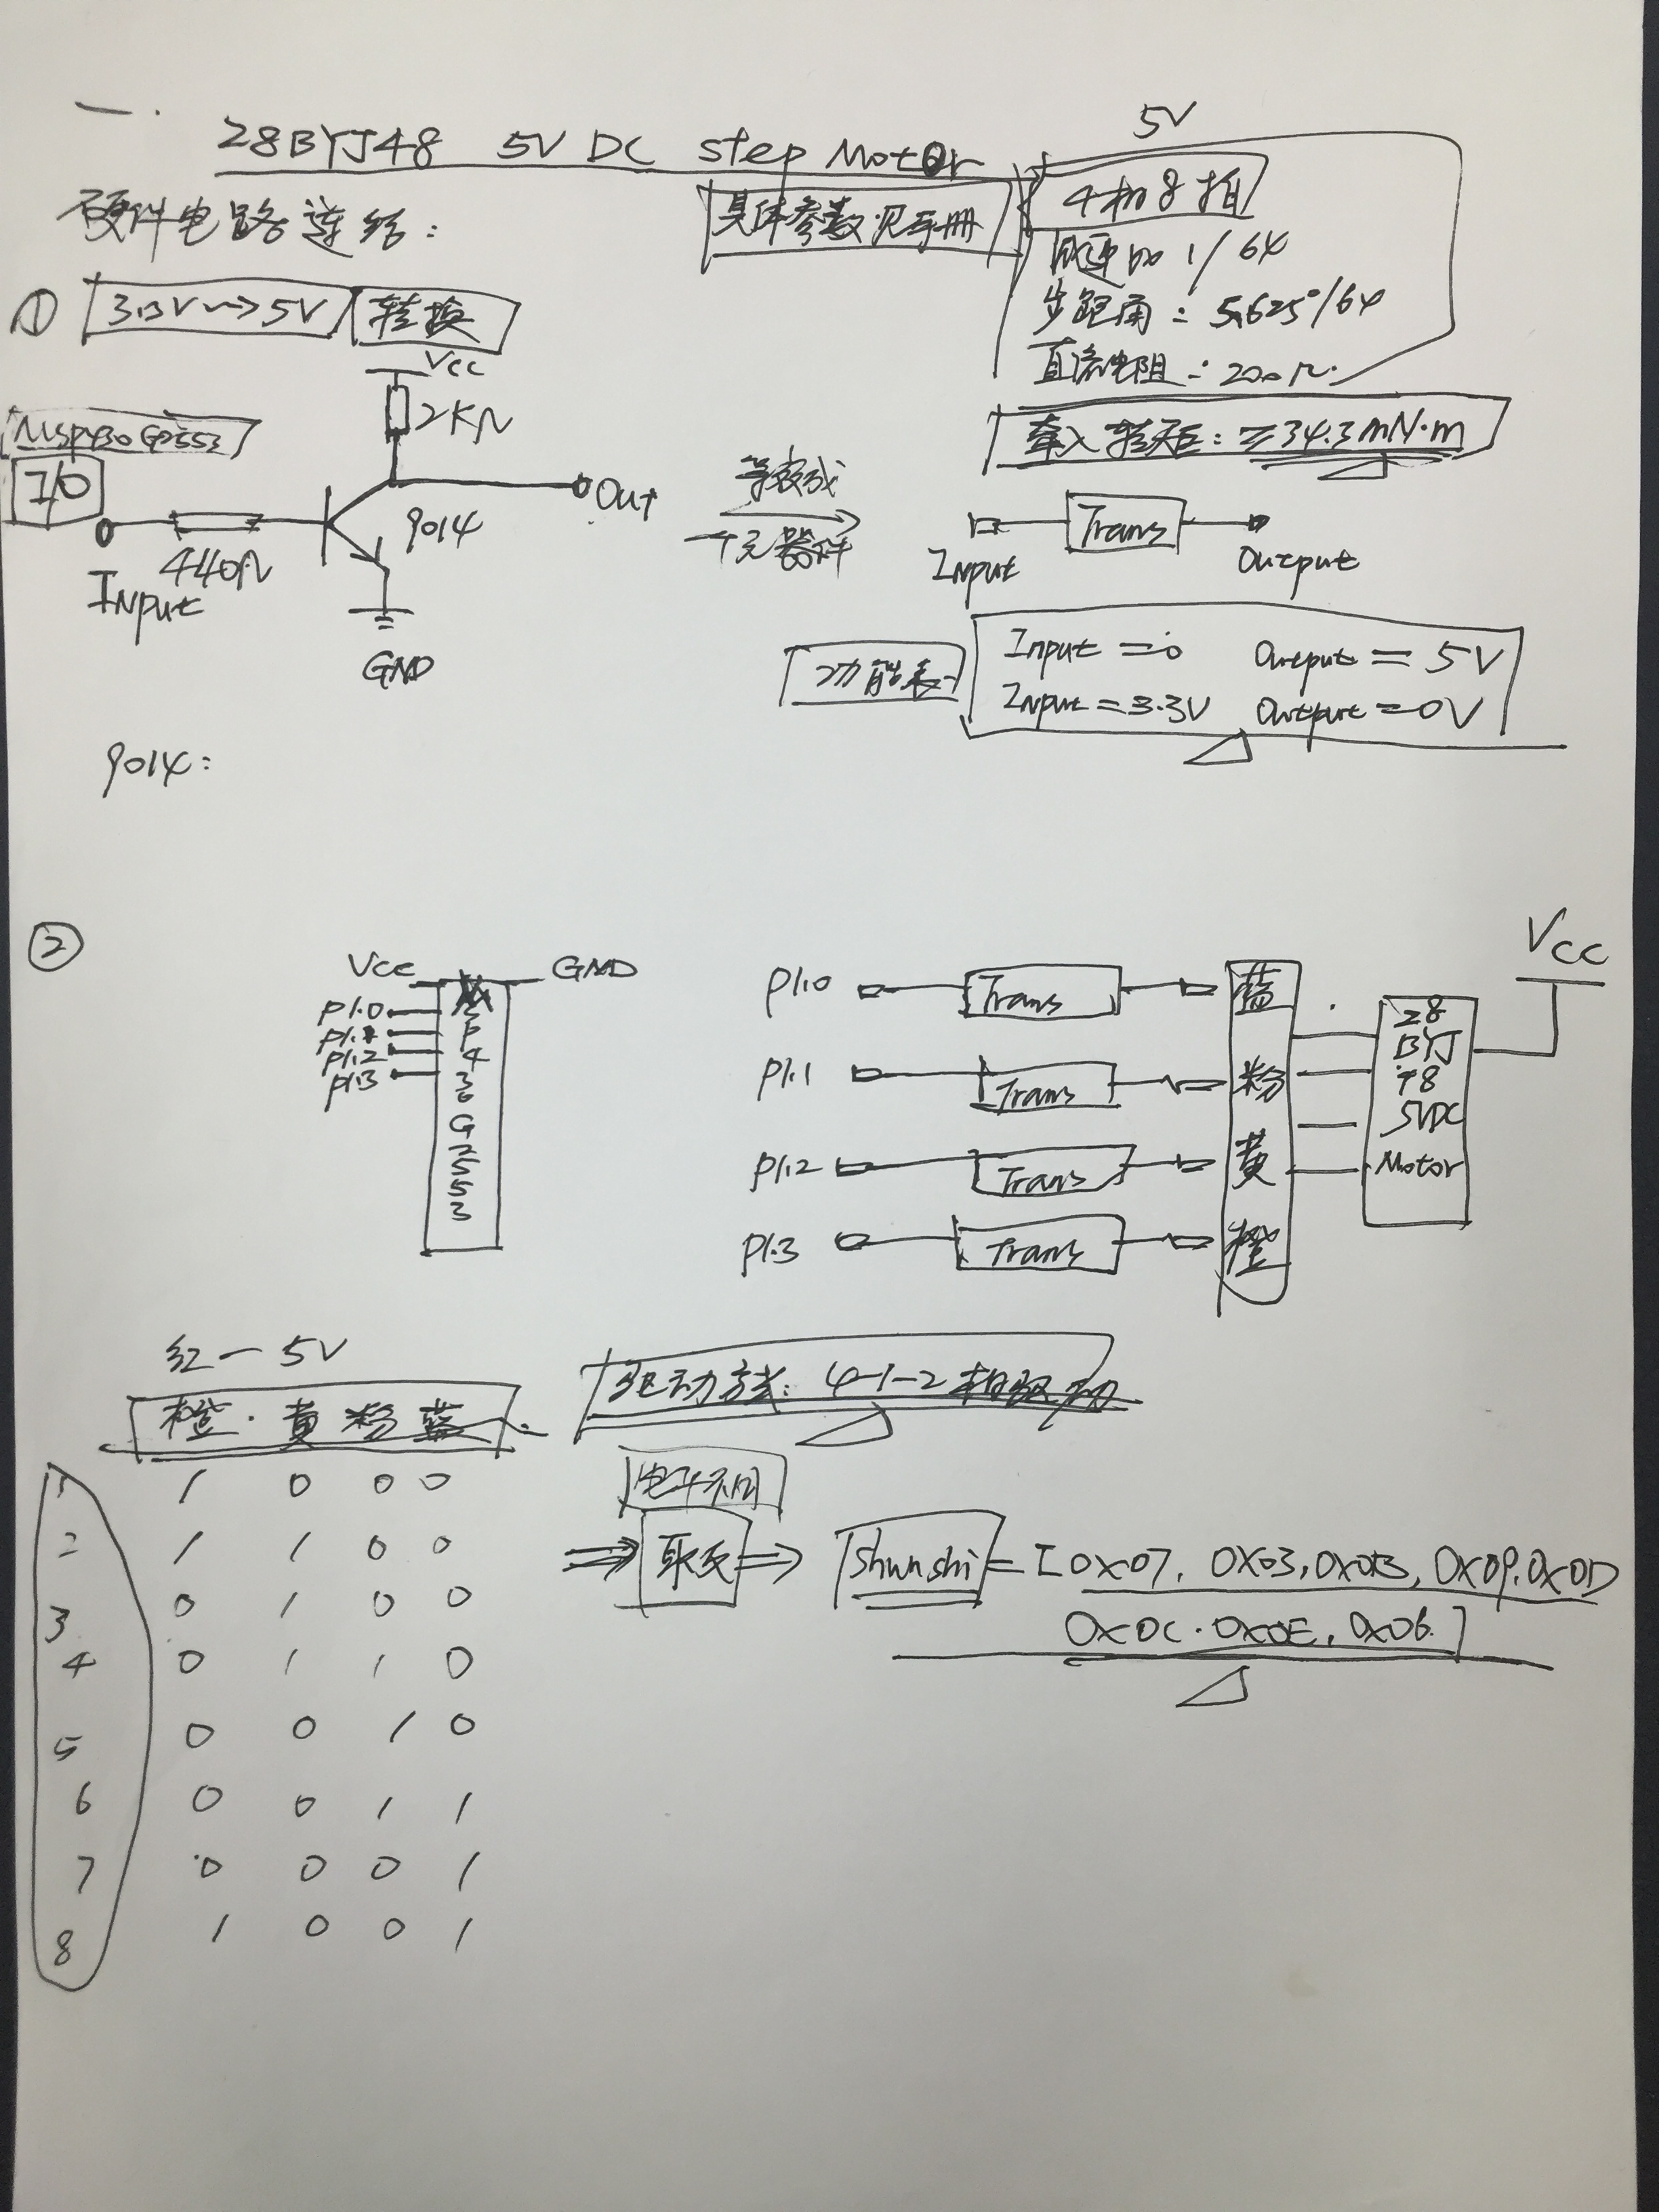 一.
28BYJ48 5V DC step Motor
5V
硬件电路连结:
具体参数见手册
4相8拍
减速比 1/64
步距角: 5.625°/64
直流电阻: 200Ω.
牵入转矩: ≥34.3mN·m
① 3.3V→5V 转换
Vcc
2KΩ
MSP430G2553
I/O
Input
440Ω
9014
Out
GND
等效成
一元器件
Input Trans Output
功能表
Input = 0 Output = 5V
Input = 3.3V Output = 0V
9014:
②
Vcc GND
P1.0
P1.1
P1.2
P1.3
P430G2553
P1.0 Trans 蓝
P1.1 Trans 粉
P1.2 Trans 黄
P1.3 Trans 橙
28
BYJ
48
5VDC
Motor
Vcc
红一5V
驱动方式: 4-1-2相驱动
橙.黄粉蓝
1 1 0 0 0
2 1 1 0 0
3 0 1 0 0
4 0 1 1 0
5 0 0 1 0
6 0 0 1 1
7 0 0 0 1
8 1 0 0 1
取反
⇒ ⇒ Shunshi = [0x07, 0x03, 0x0B, 0x09, 0x0D
0x0C, 0x0E, 0x06]